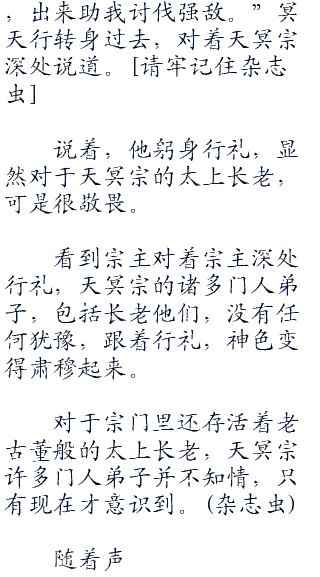 ，出来助我讨伐强敌。”冥
天行转身过去，对着天冥宗
深处说道。[请牢记住杂志
虫]
说着，他躬身行礼，显
然对于天冥宗的太上长老，
可是很敬畏。
看到宗主对着宗主深处
行礼，天冥宗的诸多门人弟
子，包括长老他们，没有任
何犹豫，跟着行礼，神色变
得肃穆起来。
对于宗门里还存活着老
古董般的太上长老，天冥宗
许多门人弟子并不知情，只
有现在才意识到。(杂志虫)
随着声